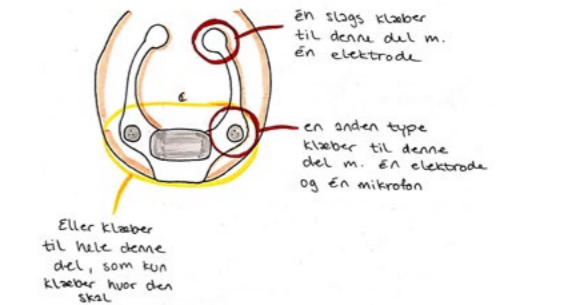 én slags klæber
til denne del m.
én elektrode
en anden type
klæber til denne
del m. én elektrode
og én mikrofon
Eller klæber
til hele denne
del, som kun
klæber hvor den
skal